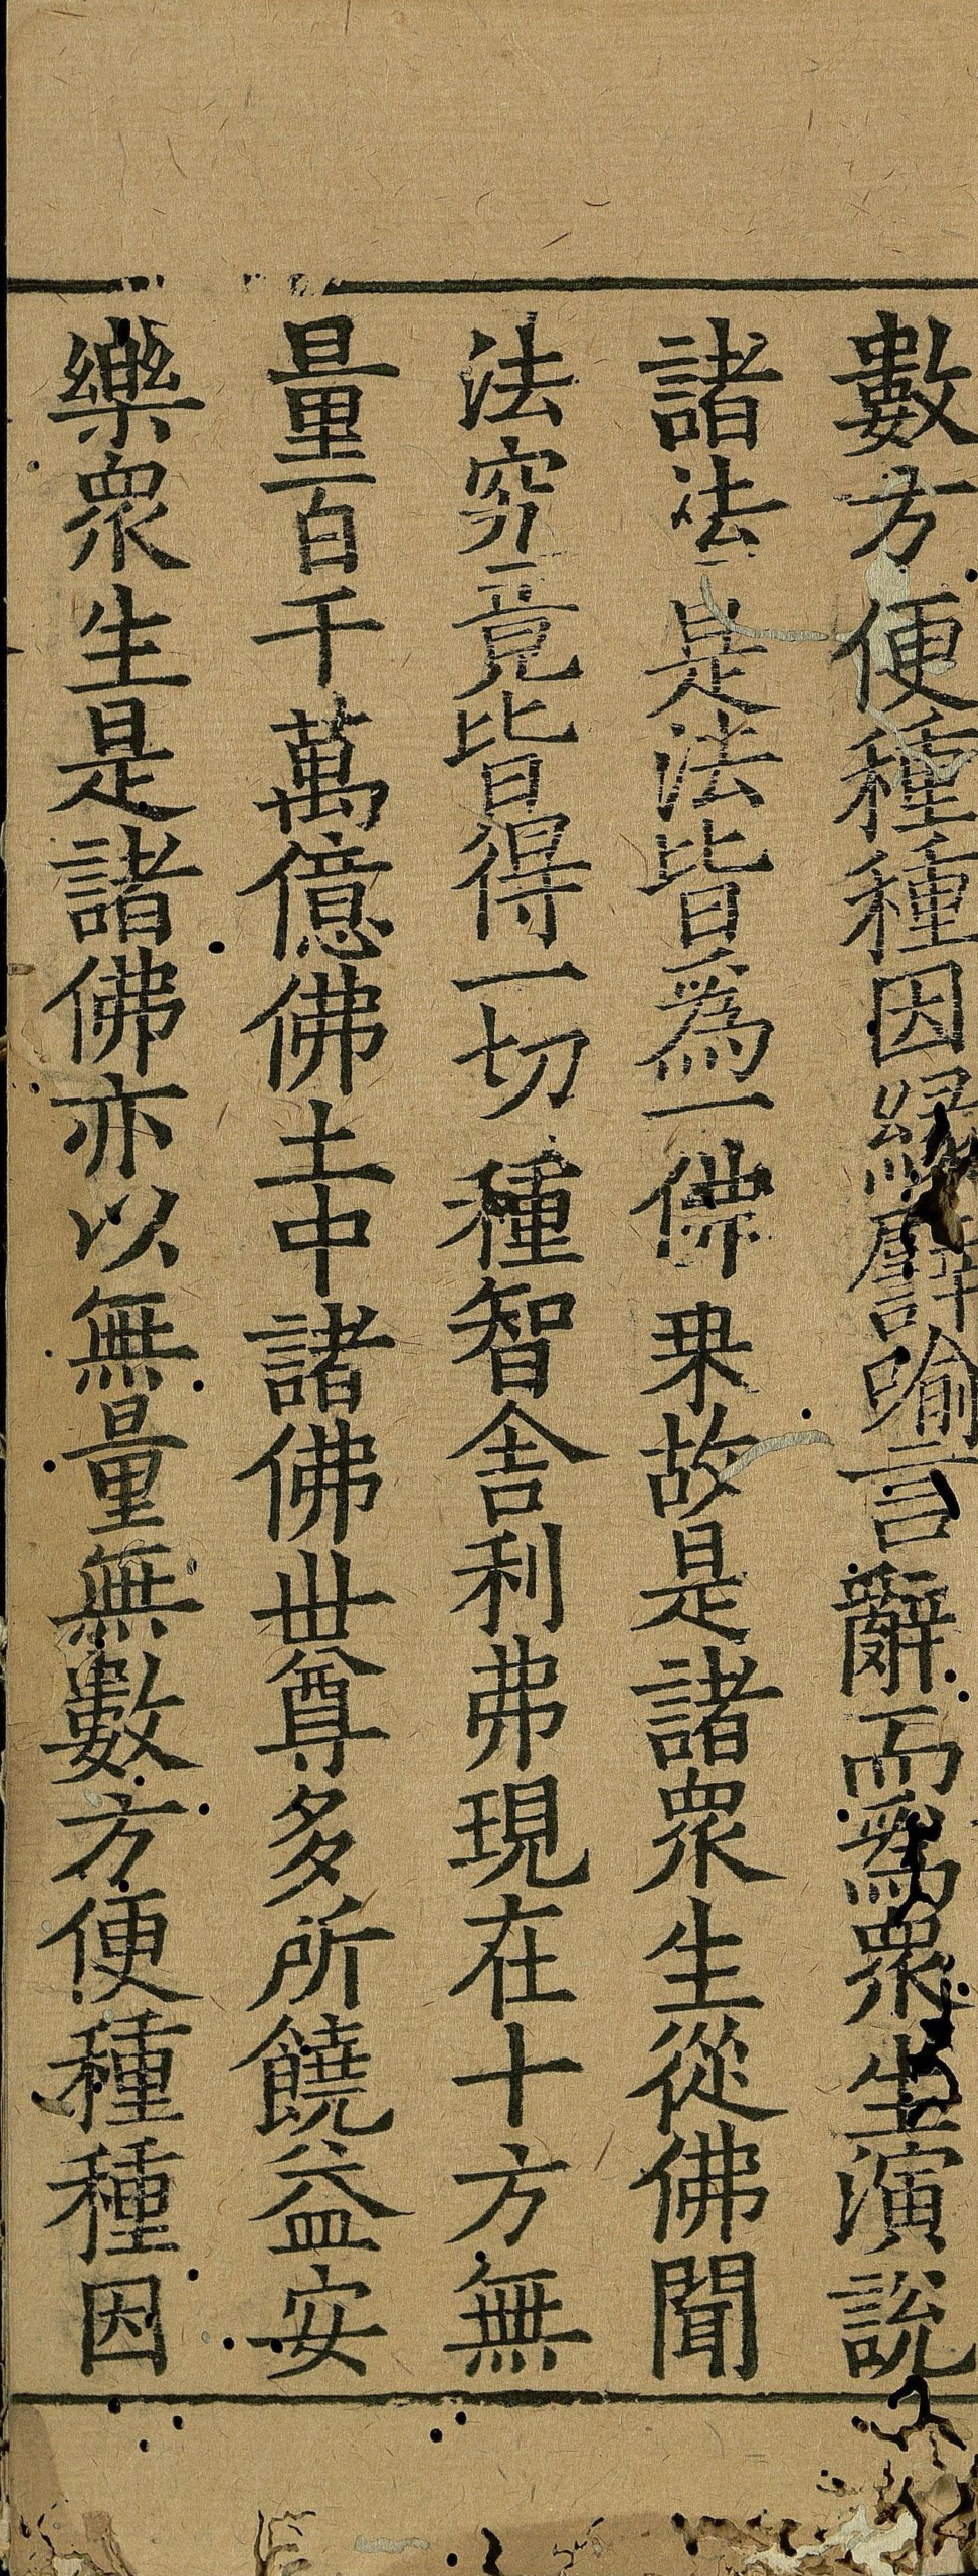 數方便種種因緣譬喻言辭而爲衆生演說
諸法是法皆爲一佛乗故是諸衆生從佛聞
法究竟皆得一切種智舍利弗現在十方無
量百千萬億佛土中諸佛丗尊多所饒益安
樂衆生是諸佛亦以無量無數方便種種因